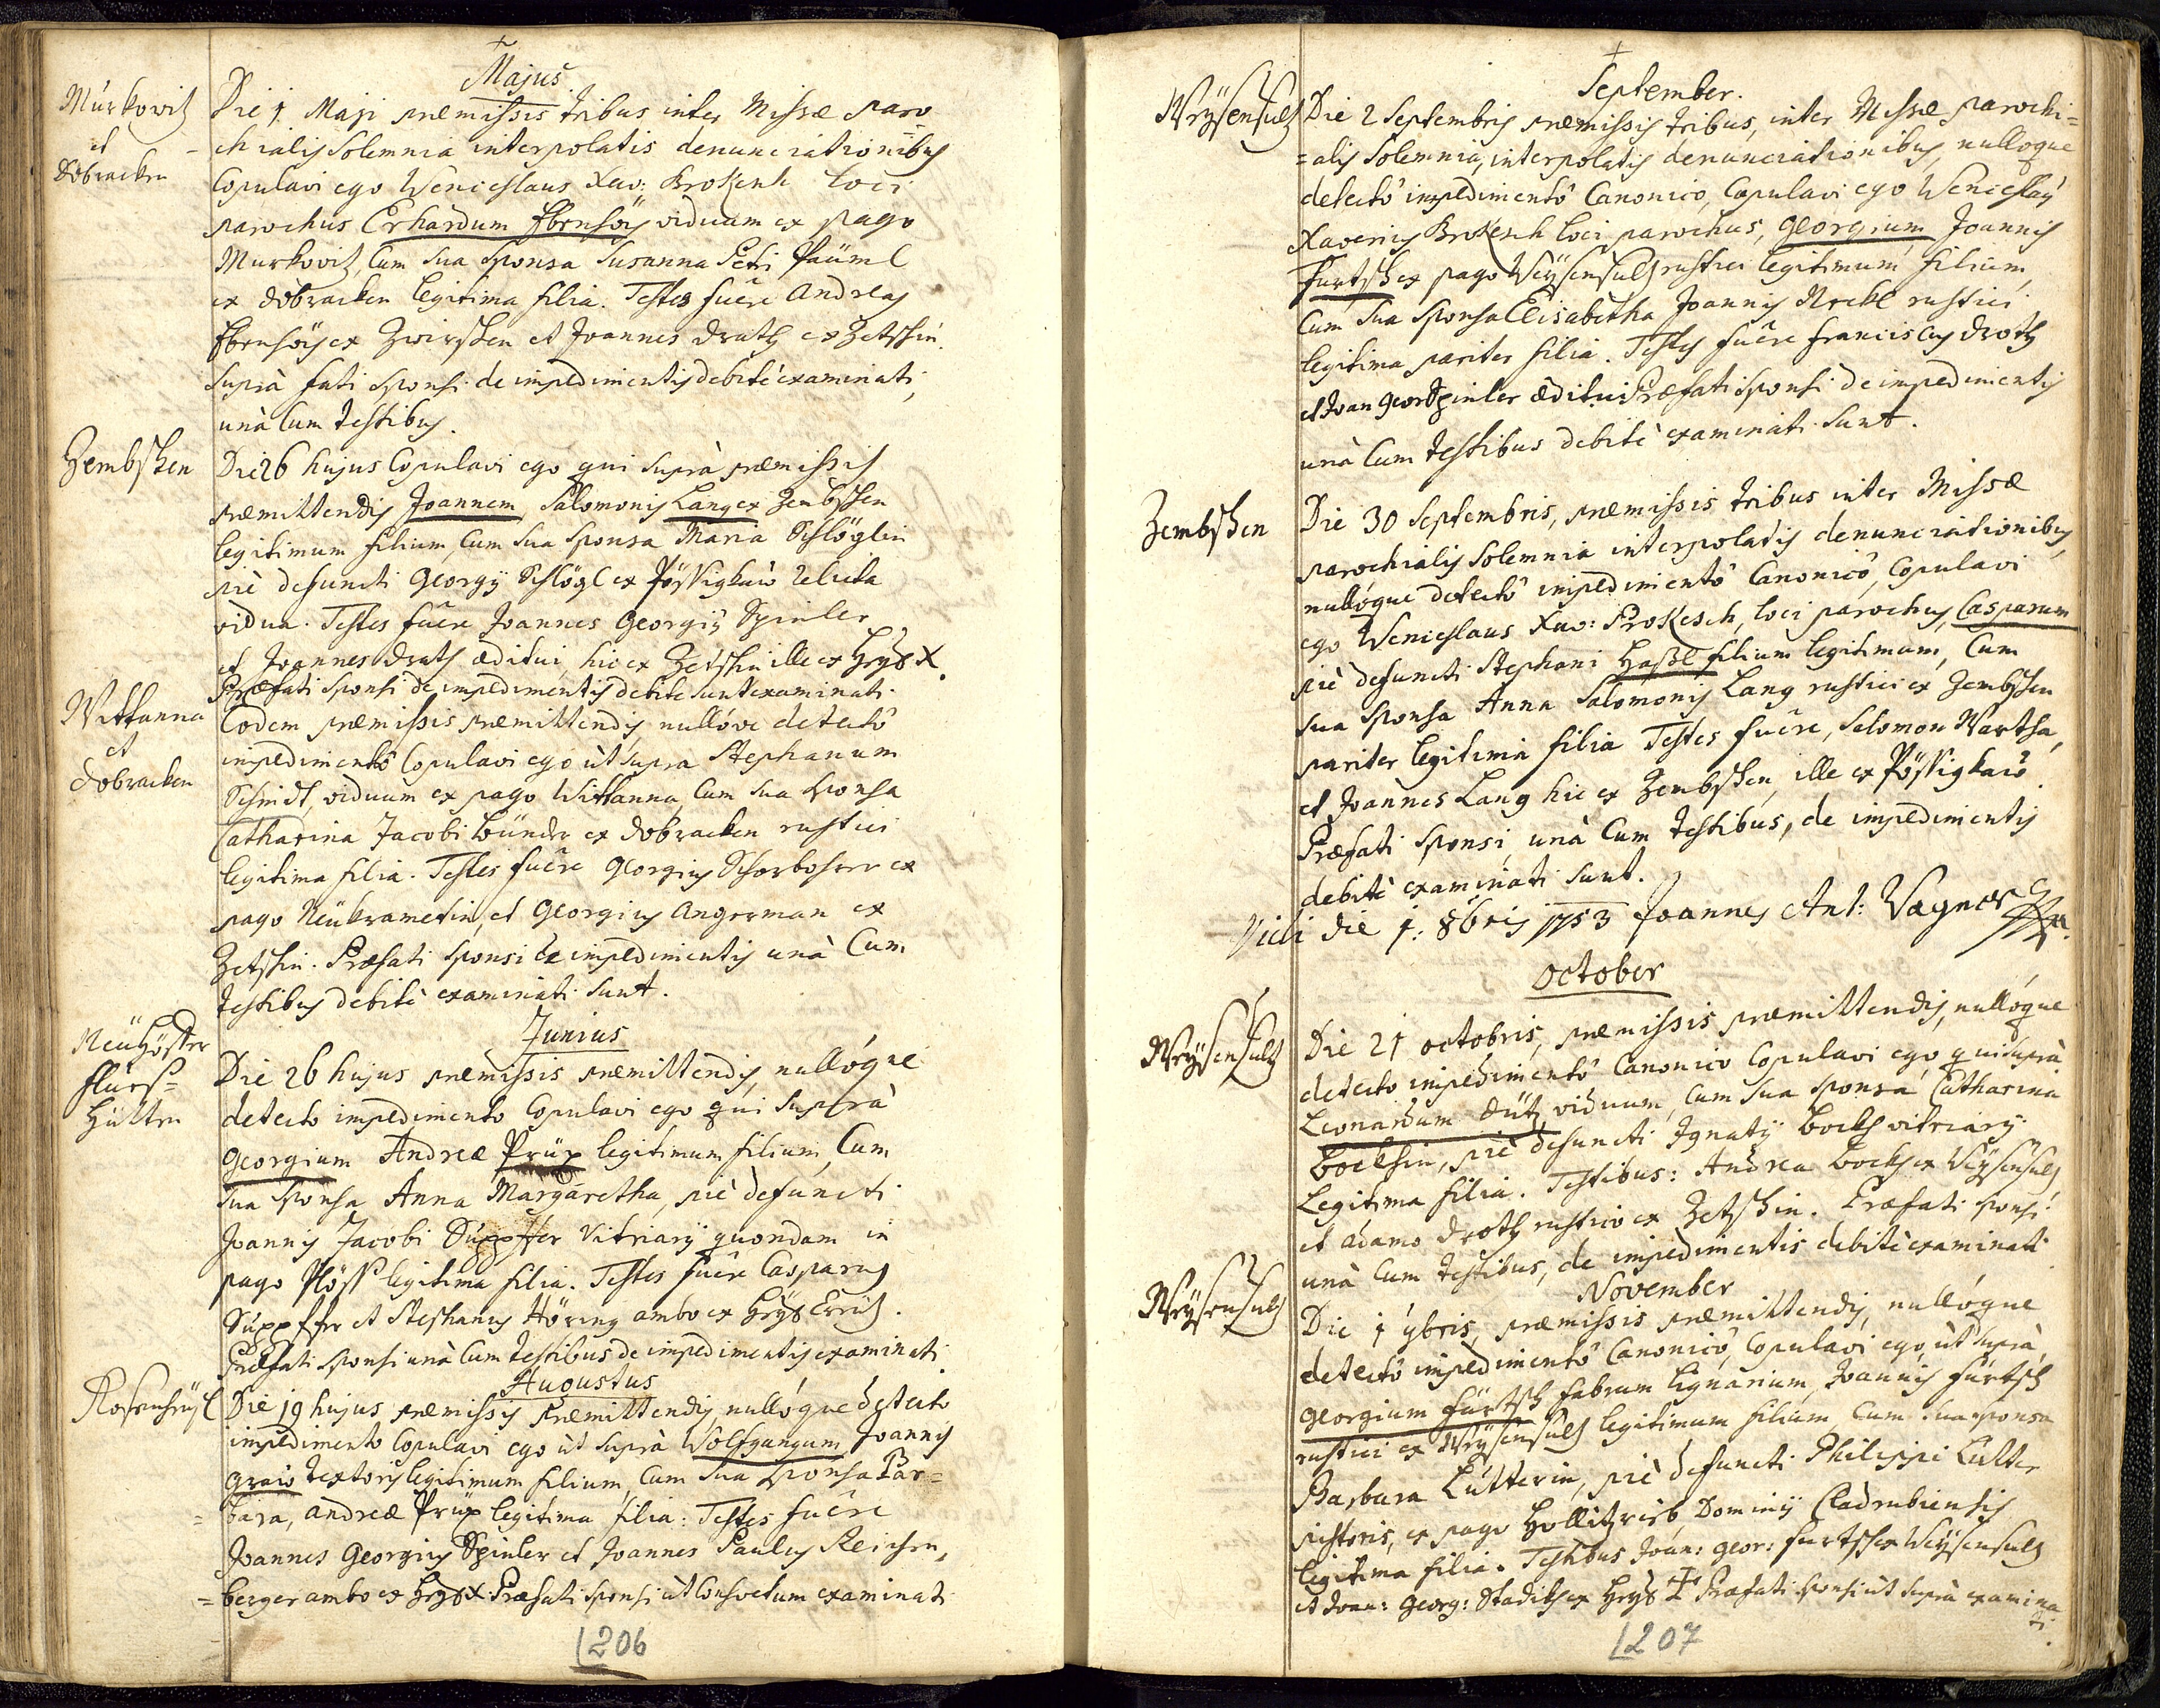 Majus
Murkowitz
et
Dobracken
Die 1. Maji præmissis tribus inter Missæ paro
chialis Solemnia interpolatis denunciationibus
Copulavi ego Wenceslaus Xav: Brokesch loci
parochus Erhardum viduum ex pago
Murkovitz, Cum sua sponsa Susanna Petri Päuml
ex dobracken legitima filia. Testes fuêre Andreas
ex Zwirschen et Joannes Drath ex Zetschin.
suprà fati sponsi de impedimentis debitè examinati,
unà Cum testibus.
Zembschen
Die 26 hujus Copulavi ego qui suprà præmissis
præmittendis Joannem Salomonis Lang ex Zembschen
legitimum filium, Cum sua sponsa Maria Schlöglin
piè defuncti Georgij Schlögl ex relicta
vidua. Testes fuêre Joannes Georgij Spinler
et Joannes Drath æditui, hic ex Zetschin ille ex Heyl X.
Præfati sponsi de impedimentis debite sunt examinati.
Wittanna
et
Dobracken
Eodem præmissis præmittendis nullóve detectô
impedimentô Copulavi ego ùt supra Stephanum
Schmidt, viduum ex pago Wittanna, Cum sua sponsa
Catharina Jacobi ex dobracken rustici
legitima filia. Testes fuêre Georgius ex
pago Neükrametin, et Georgius Angerman ex
Zetschin. Præfati sponsi de impedimentis unà Cum
testibus debitè examinati sunt.
Neühöffer
Hütten
Junius
Die 26 hujus præmissis præmittendis, nullóque
detecto impedimento Copulavi ego qui suprà
Georgium Andreæ Prüx legitimum filium, Cum
sua sponsa Anna Margaretha, piè defuncti
Joannis Jacobi Vitriarij quondam in
pago legitima filia. Testes fuêre Casparus
et Stephanus Höring ambo ex
Præfati sponsi unà Cum testibus de impedimentis examinati
Augustus
Die 19 hujus præmissis præmittendis, nullóque detecto
impedimento Copulavi ego ùt suprà Wolfgangum Joannis
textoris legitimum filium, Cum sua sponsa Bar=
=bara, Andreæ Prüx legitima filia: Testes fuêre
Joannes Georgius Spinler et Joannes Paulus Reichen,
=berger ambo ex Heyl X. Præfati sponsi ùt Consvetum examinati
206
September.
Weysensultz
Die 2 Septembris præmissis tribus, inter Missæ parochi=
=alis Solemnia, interpolatis denunciationibus, nulloque
detectô impedimentô Canonicô, Copulavi ego Wenceslaus
Xaverius Brokesch loci parochus, Georgium Joannis
Furtsch ex pago Weysensultz rustici legitimum filium,
Cum sua sponsa Elisabetha Joannis rustici
legitima pariter filia. Testes fuêre Franciscus Droth
et Joan Geor Spinler æditui Præfati sponsi de impedimentis
unà Cum testibus debitè examinati sunt.
Zembschen
Die 30 Septembris, præmissis tribus inter Missæ
parochialis Solemnia interpolatis denunciationibus,
nullóque detectô impedimentô Canonicô, Copulavi
ego Wenceslaus Xav: Prokesch, loci parochus, Casparum
piè defuncti Stephani Haßl filium legitimum, Cum
sua sponsa Anna Salomonis Lang rustici ex Zembschen
pariter legitima filia Testes fuêre, Salomon Wartha,
et Joannes Lang hic ex Zembschen, ille ex
Præfati sponsi, unà Cum testibus, de impedimentis
debitè examinati sunt.
Vidi die 1. 8bris 1753 Joannes Ant: Wagner
October
Weysensultz
Die 21 octobris, præmissis præmittendis, nullóque
detecto impedimentô Canonico Copulavi ego, qui suprà
Leonardum Dütz viduum, Cum sua sponsa Catharina
piè defuncti Ignatij vitriarij
Legitima filia. Testibus: Andrea ex Weysensultz
et adamo Droth rustico ex Zetschin. Præfati sponsi
unà Cum testibus, de impedimentis debitè examinati
November
Weysensultz
Die 1 9bris, præmissis præmittendis, nullóque
detectô impedimentô Canonicô, Copulavi ego, ùt suprà,
Georgium Fürtsch fabrum lignarium, Joannis Fürtsch
rustici ex Weysensultz legitimum filium, Cum sua sponsa
Barbara Lutterin, piè defuncti Philippi Lutter
pistoris, ex pago Hollitzrieb, Dominij Cladrubiensis
legitima filia. Testibus Joan: geor: Furtsch ex Weysensultz
et Joan: Georg: ex Heyl Præfati sponsi ùt suprà examina
ti.
207